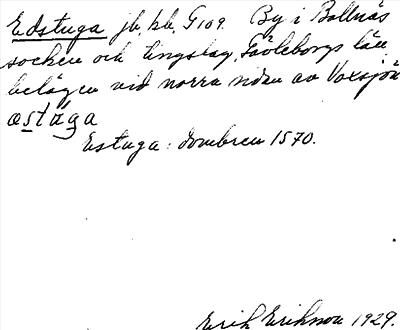 Edstuga jb, kb, G109. By i Bollnäs
socken och tingslag, Gävleborgs län,
belägen vid norra sidan av Voxsjön
æstúga
Estuga: dombrev 1570.
Erik Eriksson 1929.